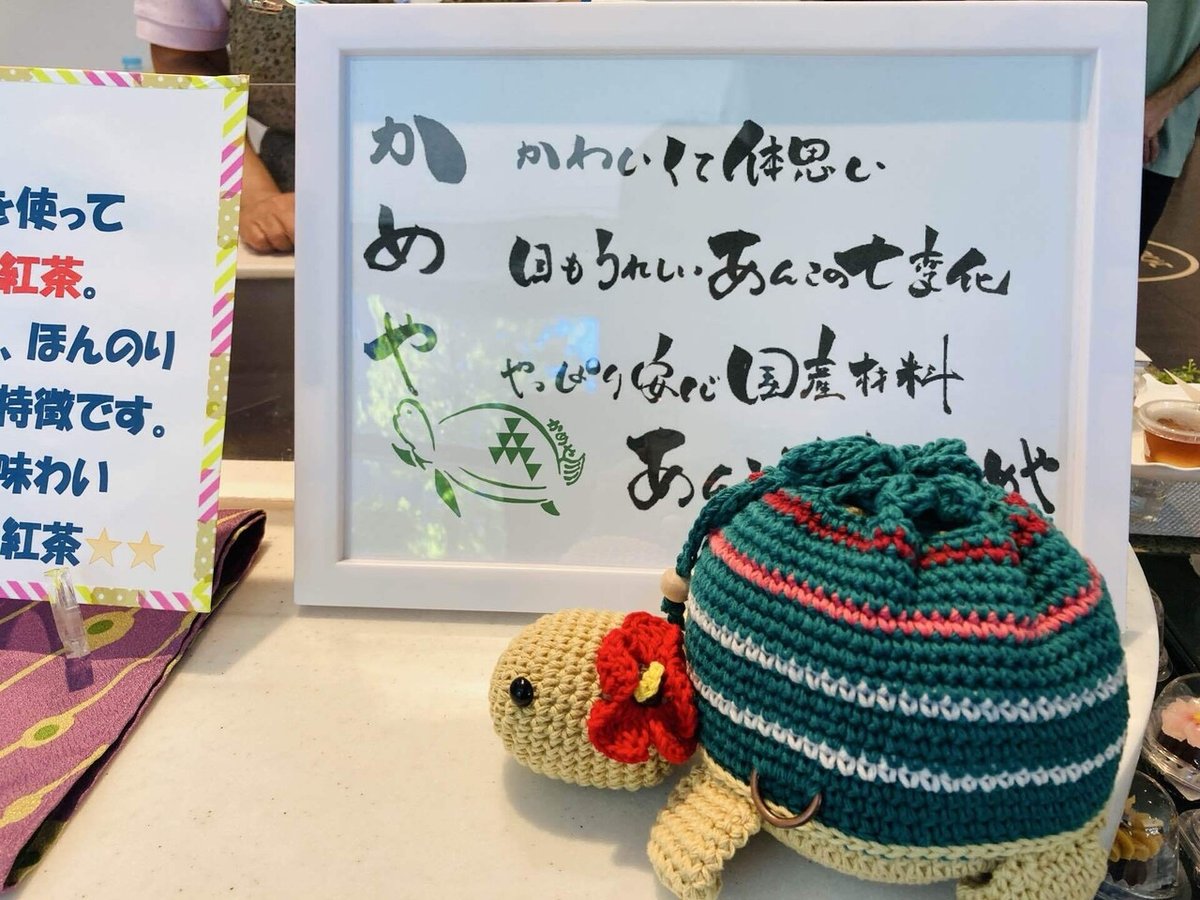 を使って
紅茶。
、ほんのり
特徴です。
味わい
紅茶★★
か かわいくて体思い
め 目もうれしいあんこの七変化
や やっぱり安心国産材料
かめや
あん
めや